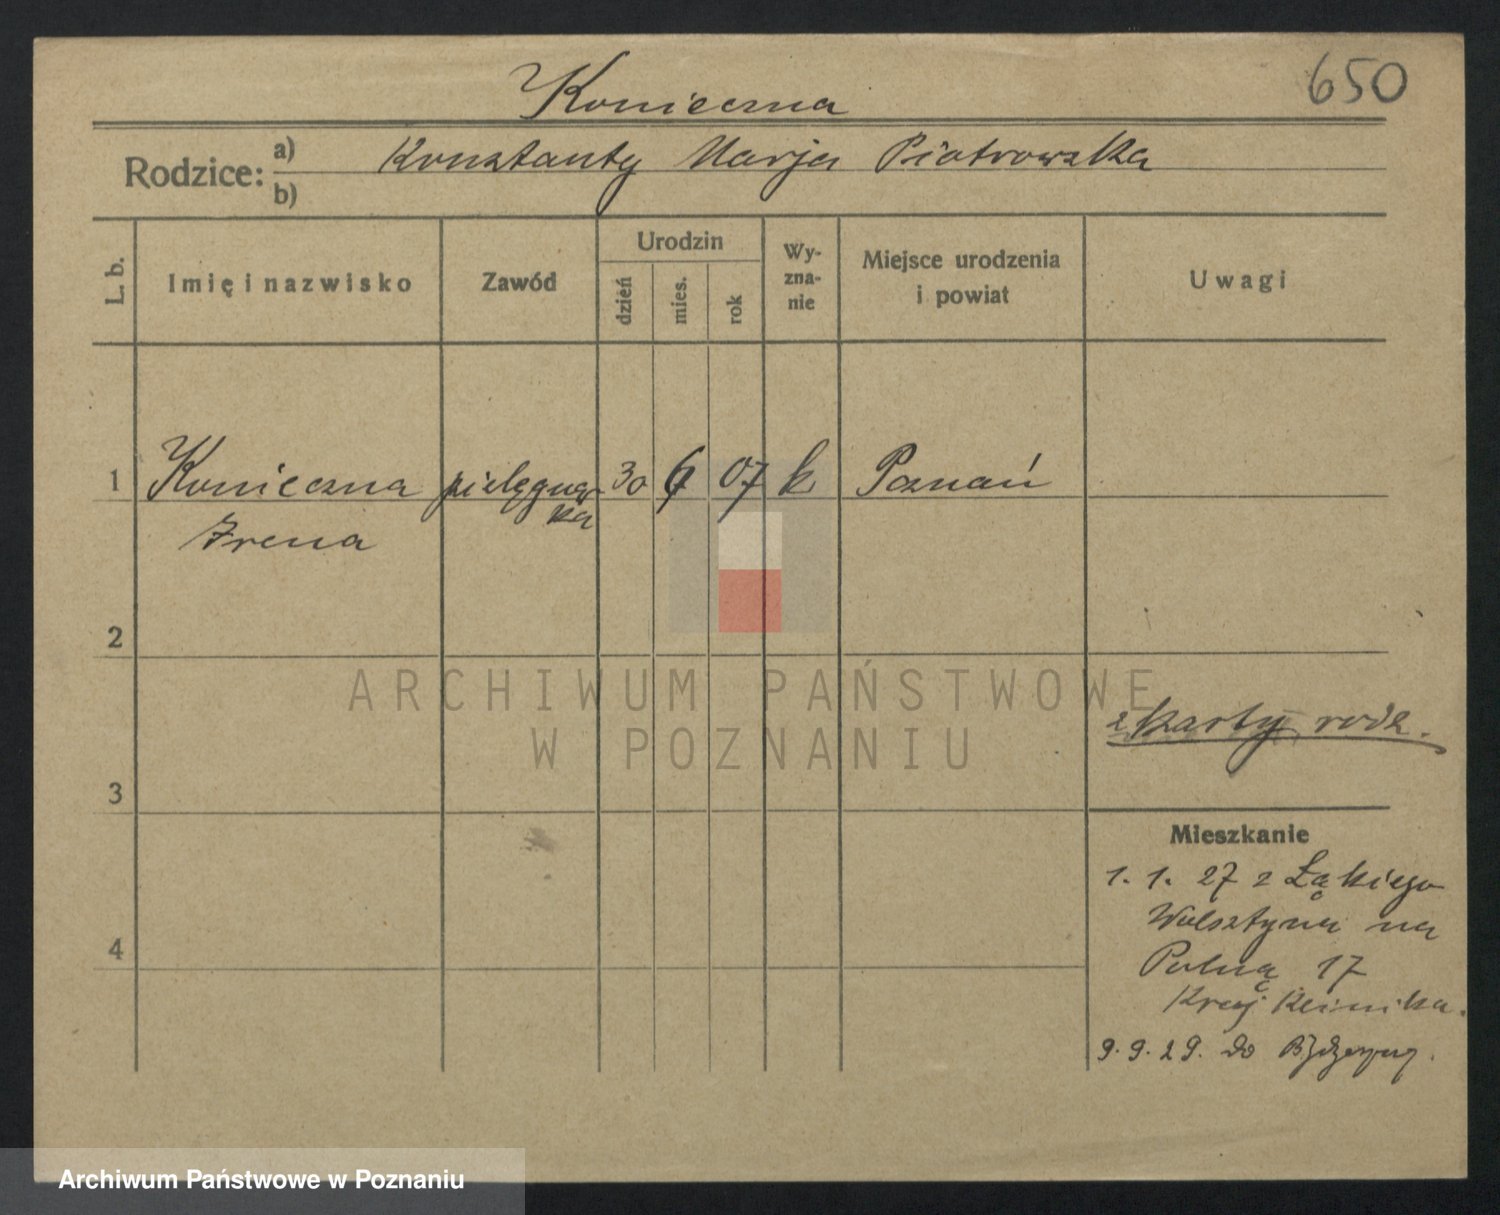 Konieczna 650
Rodzice: a) Konstanty Marja Piotrowska
b)
L. b. Imię i nazwisko Zawód Urodzin dzień mies. rok Wy-
zna-
nie Miejsce urodzenia
i powiat Uwagi
1 Konieczna pielęgniar- 30 6 07 k Poznań
ka
Irena
2
ARCHIWUM PAŃSTWOWE
W POZNANIU
z karty rodz.
3
Mieszkanie
1. 1. 27 z Łąkiego
Wolsztyna na
4
Polną 17
Kraj. Klinika.
9. 9. 29. do Bydgoszczy.
Archiwum Państwowe w Poznaniu